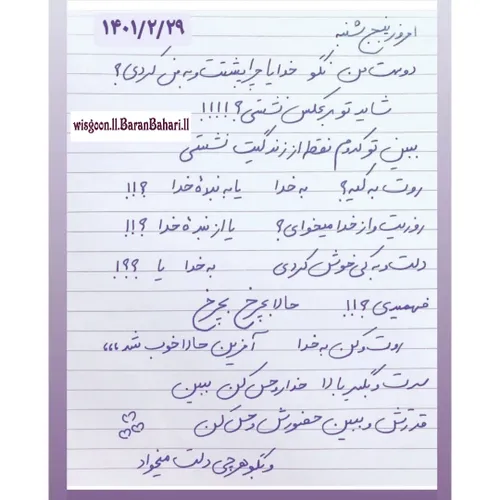 امروز پنج شنبه
۱۴۰۱/۲/۲۹
دوست من نگو خدایا چرا پشتت و به من کردی؟
شاید تو برعکس نشستی؟!!!!
wisgoon.ll.BaranBahari.ll
ببین تو کدوم نقطه از زندگیت نشستی
روت به کیه؟ به خدا یا به بندهٔ خدا ؟!!
روزیت و از خدا میخوای؟ یا از بندهٔ خدا ؟!!
دلت و به کی خوش کردی به خدا یا ؟؟؟!
فهمیدی؟!!! حالا بچرخ بچرخ
روت و کن به خدا آفرین حالا خوب شد،،،،
سرت و بگیر بالا خدا رو حس کن ببین
قدرتش و ببین حضورش و حس کن
و بگو هرچی دلت میخواد